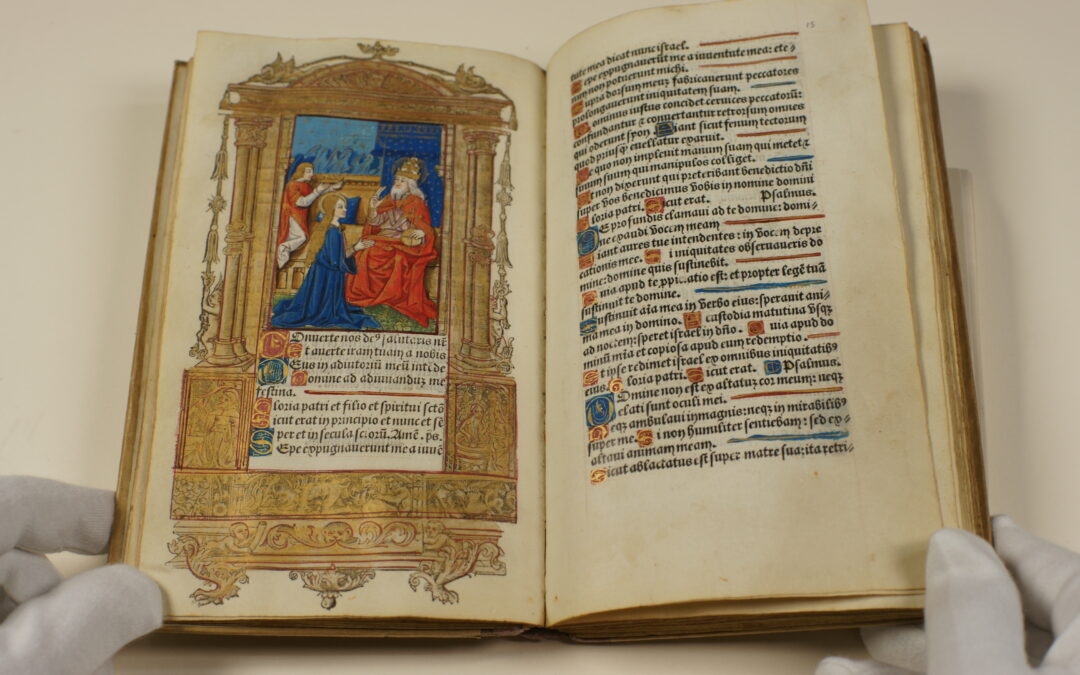 Onuerte nos de⁹ salutaris nr̄
t auerte iram tuam a nobis
Eus in adiutoriū meū intēde
Domine ad adiuuandū me
festina.
Gloria patri et filio et spiritui sctō
icut erat in principio et nunc et sē
per et in secula scōrū. Amē. ps.
Sepe expugnauerunt me a iuuē
15
tute mea dicat nunc israel.
Sepe expugnauerūt me a iuuentute mea: ete⸗
nim non potuerunt michi.
Supra dorsum meuȝ fabricauerunt peccatores
prolongauerunt iniquitatem suam.
Dominus iustus concidet ceruices peccatorū:
confundantur ⁊ conuertantur retrorsum omnes
qui oderunt syon
Fiant sicut fenum tectorum
quod priusqȝ euellatur exaruit.
De quo non impleuit manum suam qui metet ⁊
sinum suum qui manipulos colliget.
Et non dixerunt qui preteribant benedictio dn̄i
super vos benedicimus vobis in nomine domini
Gloria patri. Sicut erat. Psalmus.
De profundis clamaui ad te domine: domi⸗
ne exaudi vocem meam
Fiant aures tue intendentes: in vocem depre
cationis mee. Si iniquitates obseruaueris do
mine: domine quis sustinebit.
Quia apud te ppiciatio est: et propter legē tuā
sustinuit te domine.
Sustinuit aīa mea in verbo eius: sperauit ani⸗
ma mea in domino. A custodia matutina vsqȝ
ad noctem: speret israel in dn̄o. Quia apud do
minū mīa et copiosa apud eum redemptio.
Et ipse redimet israel ex omnibus iniquitatib⁹
eius. Gloria patri. Sicut erat. Psalmus.
Domine non est exaltatū cor meum: neqȝ
elati sunt oculi mei.
Neqȝ ambulaui in magnis: neqȝ in mirabilib⁹
super me. Si non humiliter sentiebam: sed ex⸗
altaui animam meam.
Sicut ablactatus est super matre sua: ita retri⸗